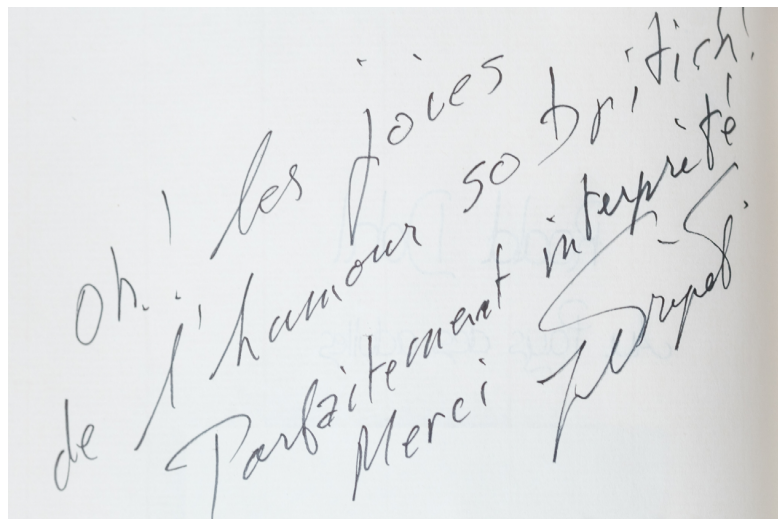 Oh..! les joies
de l'hamour so british!
Parfaitement interprété
Merci